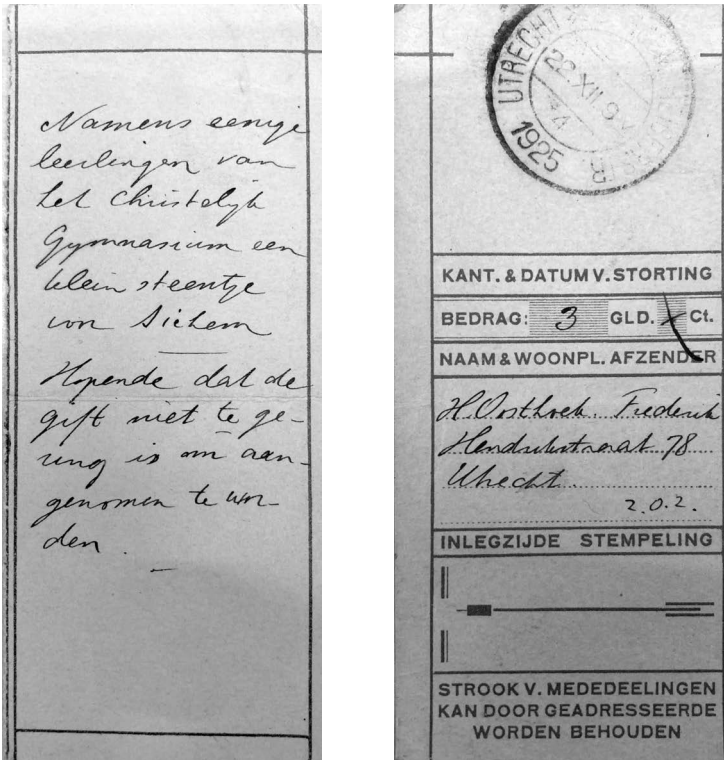 Namens eenige
leerlingen van
het Christelijk
Gymnasium een
klein steentje
voor Sichem
Hopende dat de
gift niet te ge-
ring is om aan-
genomen te wor-
den.
UTRECHT
22.XII.9-V
1925
KANT. & DATUM V. STORTING
BEDRAG: 3 GLD. Ct.
NAAM & WOONPL. AFZENDER
H. Oosthoek. Frederik
Hendrikstraat 78
Utrecht.
2.0.2.
INLEGZIJDE STEMPELING
STROOK V. MEDEDEELINGEN
KAN DOOR GEADRESSEERDE
WORDEN BEHOUDEN